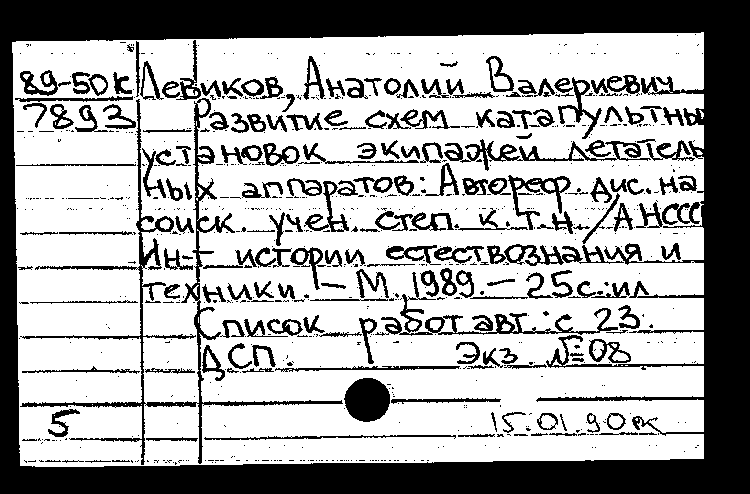 89-50к Левиков, Анатолий Валериевич
7893 Развитие схем катапультны
установок экипажей летатель
ных аппаратов: Автореф. дис. на
соиск. учен. степ. к.т.н. / АНССС
Ин-т истории естествознания и
техники. - М., 1989. - 25с.: ил
Список работ авт.: с 23.
ДСП. Экз. №08
5 15.01.90